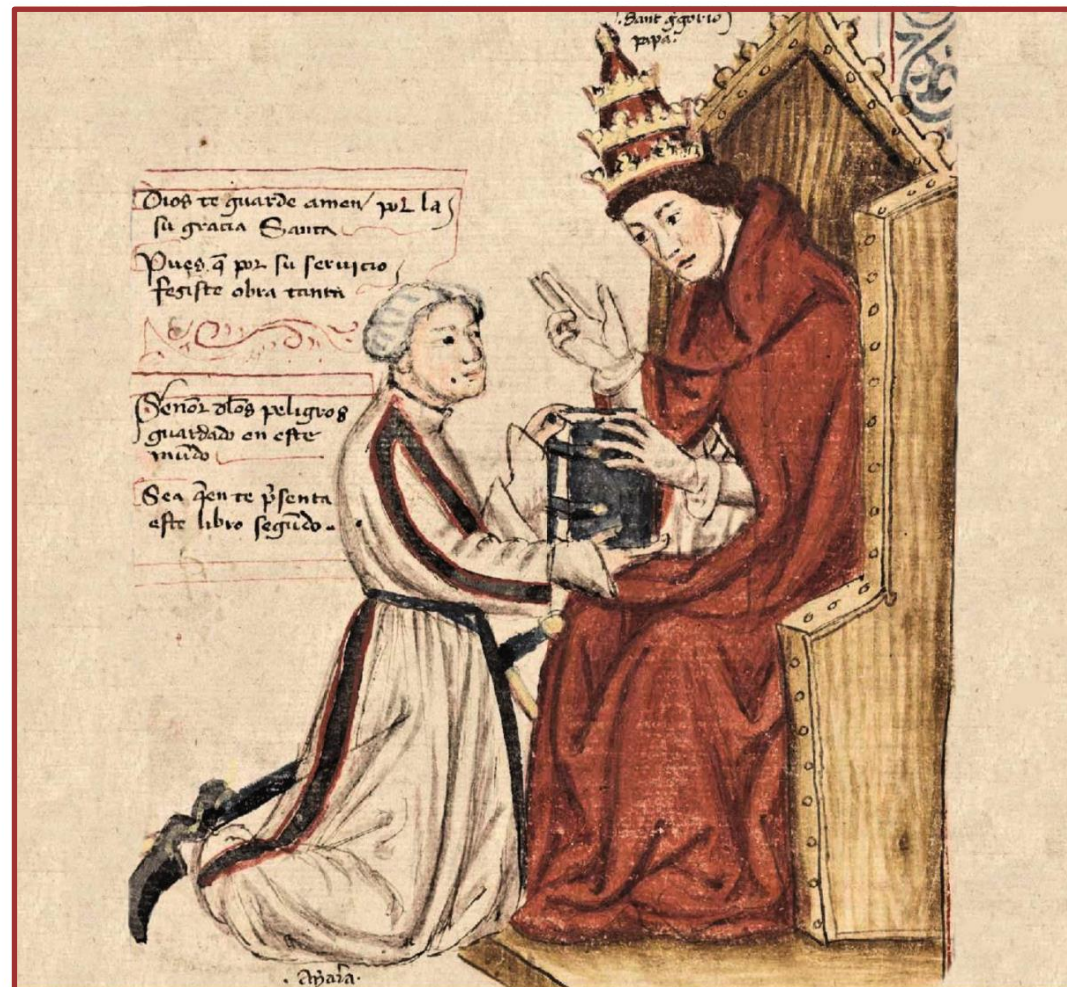 Sant g̃gorio
papa.
Dios te guarde amen / por la
su gracia Santa
Pues q̃ por su seruicio
fegiste obra tanta
Señor dlos peligros
guardado en este
mũdo
Sea q̃en te p̃senta
este libro segũdo